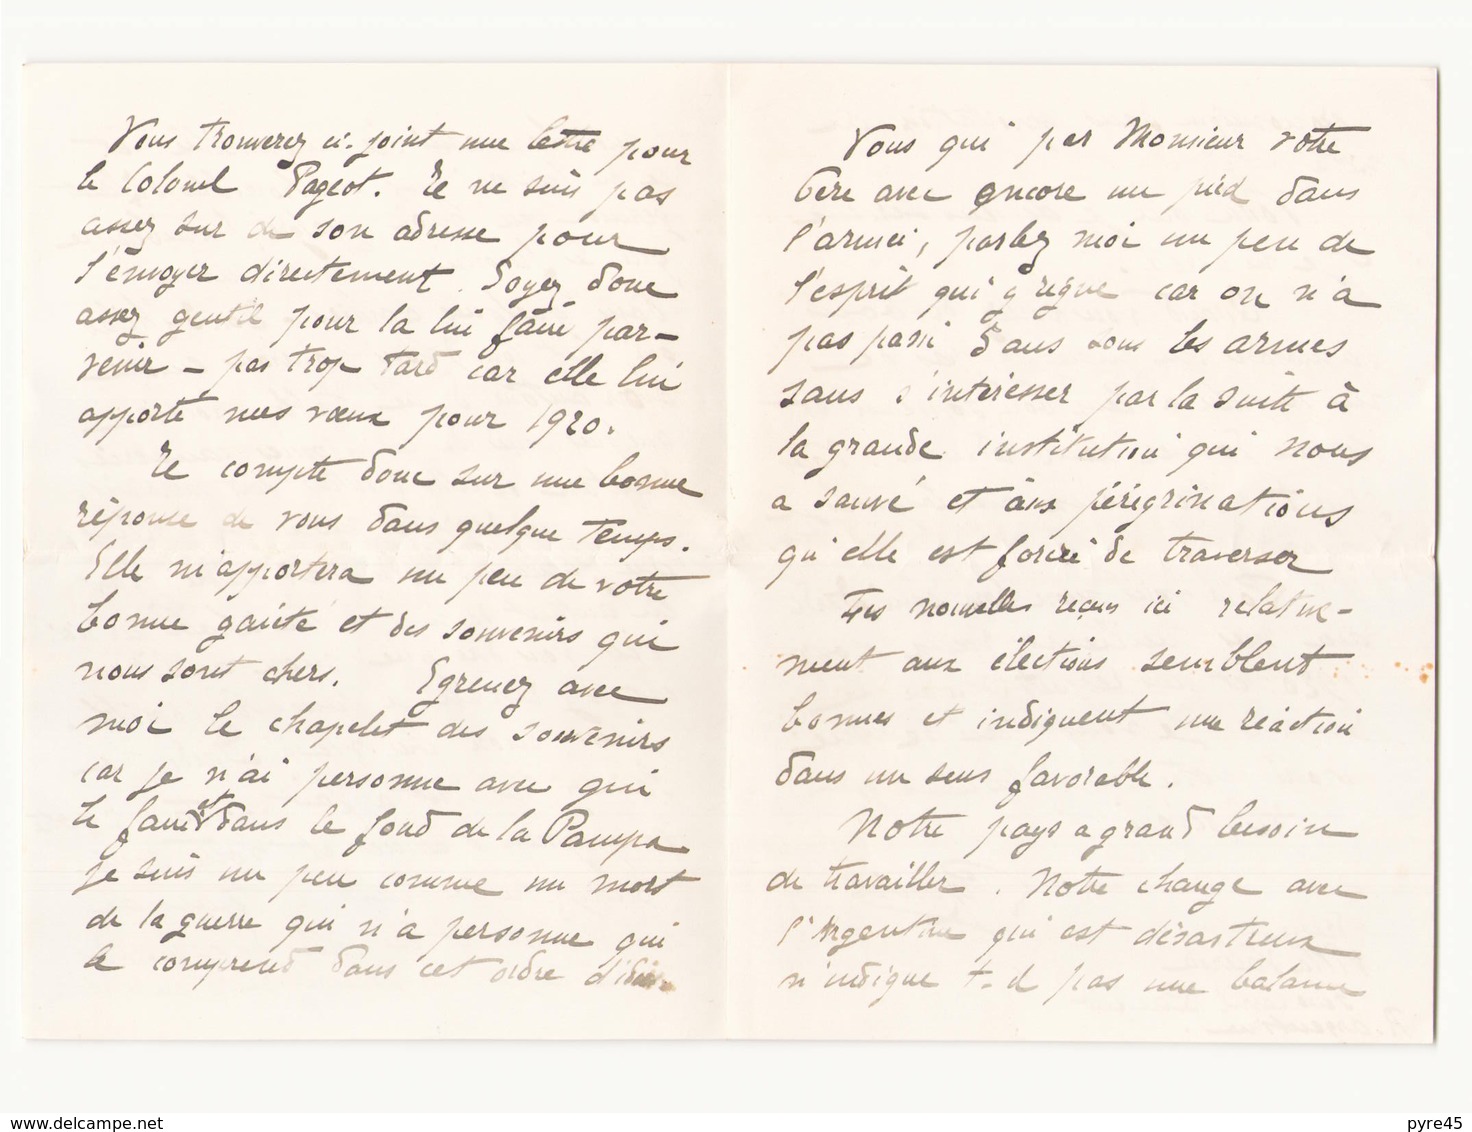 Vous trouverez ci-joint une lettre pour
le Colonel Pageot. Je ne suis pas
assez sur de son adresse pour
l'envoyer directement. Soyez donc
assez gentil pour la lui faire par-
venir - pas trop tard car elle lui
apporte mes vœux pour 1920.
Je compte donc sur une bonne
réponse de vous dans quelque temps.
Elle m'apportera un peu de votre
bonne gaieté et des souvenirs qui
nous sont chers. Egrenez avec
moi le chapelet des souvenirs
car je n'ai personne avec qui
le faire et dans le fond de la Pampa
je suis un peu comme un mort
de la guerre qui n'a personne qui
le comprend dans cet ordre d'idées.
Vous qui par Monsieur votre
Père avec encore un pied dans
l'armée, parlez moi un peu de
l'esprit qui y règne car on n'a
pas passé 5 ans sous les armes
sans s'intéresser par la suite à
la grande institution qui nous
a sauvé et aux pérégrinations
qu'elle est forcée de traverser
Les nouvelles reçues ici relative-
ment aux élections semblent
bonnes et indiquent une réaction
dans un sens favorable.
Notre pays a grand besoin
de travailler. Notre change avec
l'Argentine qui est désastreux
n'indique t-il pas une balance
delcampe.net
pyre45